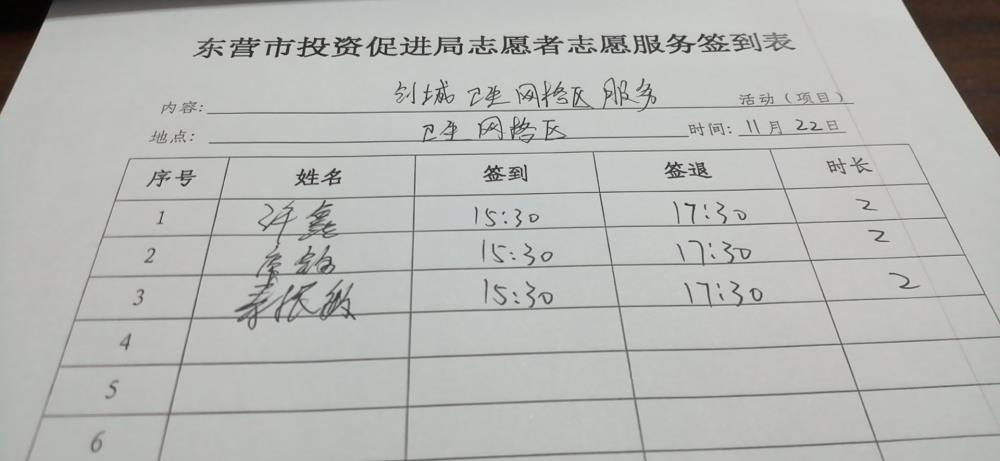 东营市投资促进局志愿者志愿服务签到表
内容: 创城卫生网格区服务 活动（项目）
地点: 卫生网格区 时间: 11月22日
序号 姓名 签到 签退 时长
1 许鑫 15:30 17:30 2
2 15:30 17:30 2
3 振敏 15:30 17:30 2
4
5
6